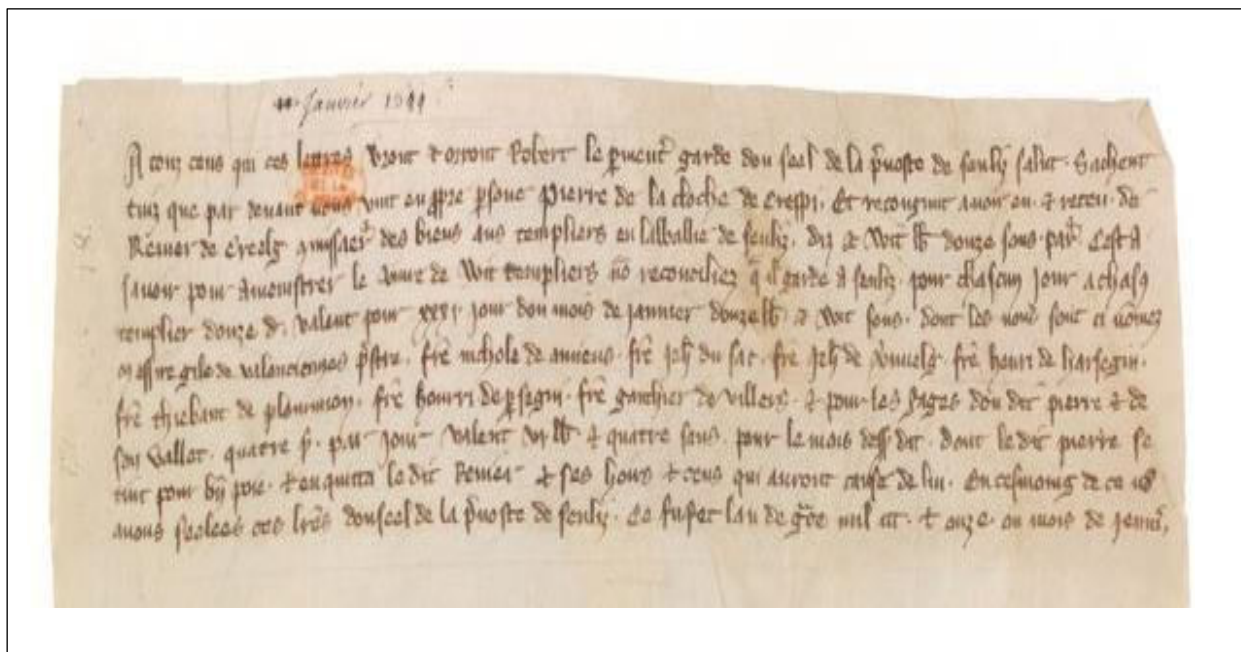 Janvier 1311
A touz ceus qui ces lettres verront et orront Robert le garde dou seel de la pvoste de senliz salut. Sachent
tuiz que par devant nous vint en ppre psone pierre de la cloche de crespi. Et recongnut avoir eu et receu de
Renier de creelg des biens aus templiers en la ballie de senliz, diz et wit lb douze sous par. C'est a
savoir pour amenistrer le vivre de wit templiers no reconciliez q il garde a senliz. pour chascun jour a chasq
templier douze d. valent pour xxxi jour dou mois de janvier douze lb et wit sous. dont les nons sont ci nomez
Messire gile de valenciennes pstre. fre nichole de amiens. fre jeh du sac. fre jeh de fre henri de harsegin.
fre thiebaut de plourmon. fre hourri de psegin. fre gauthier de villers. et pour les gages dou dit pierre et de
son vallet. quatre s. par jour valent vi lb et quatre sous. pour le mois dess dit. dont le dit pierre se
tint pour bn poie. et en quitta le dit Renier et ses hoirs et ceus qui auront cause de lui. En tesmoing de ce no
avons seelees ces lres dou seel de la pvoste de senliz. Ce fu fet lan de gce mil ccc et onze. ou mois de jenvi.